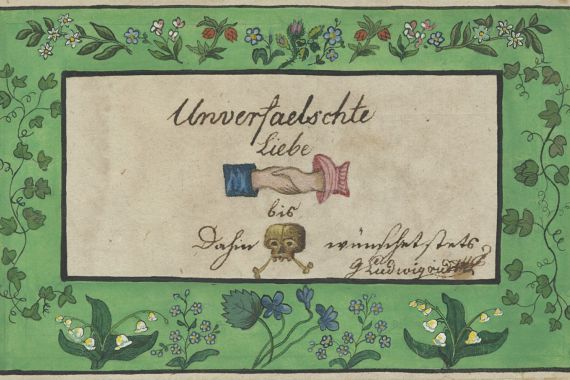 Unverfaelschte
Liebe
bis
Dahin wünschet stets
Ludwig